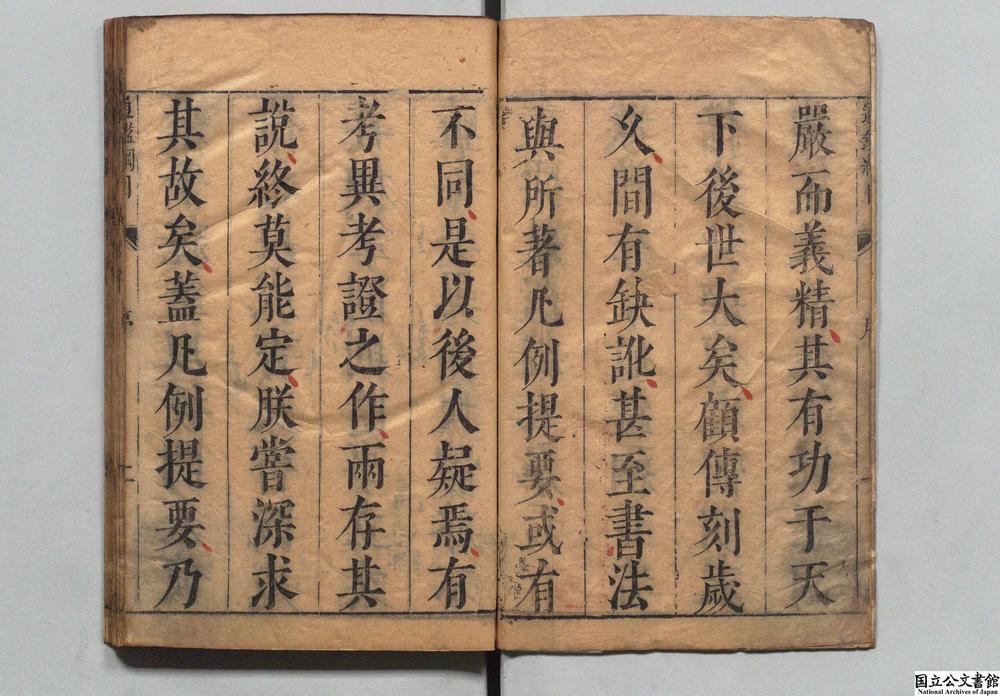 嚴而義精其有功于天
下後世大矣顧傳刻歲
久間有缺訛甚至書法
與所著凡例提要或有
不同是以後人疑焉有
考異考證之作兩存其
說終莫能定朕嘗深求
其故矣蓋凡例提要乃
序
国立公文書館
National Archives of Japan